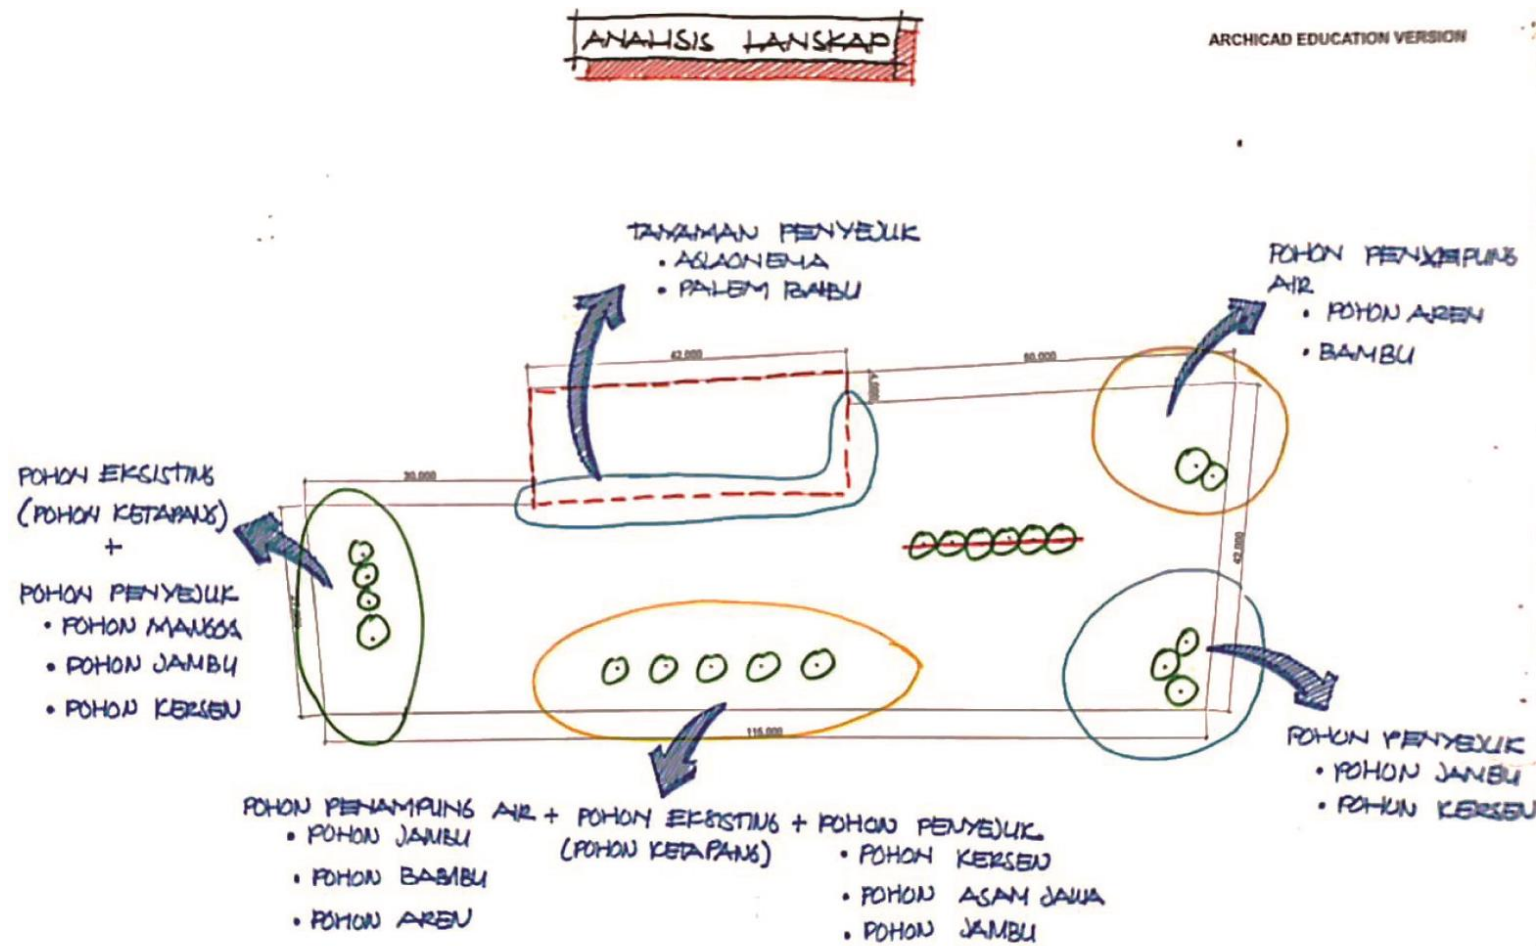 ANALISIS LANSKAP
ARCHICAD EDUCATION VERSION
TANAMAN PENYEJUK
• AGLAONEMA
• PALEM BAMBU
POHON
AIR
• POHON AREN
• BAMBU
42.000
60.000
30.000
42.000
115.000
POHON EKSISTING
(POHON KETAPANG)
+
POHON PENYEJUK
• POHON MANGGA
• POHON JAMBU
• POHON KERSEN
POHON PENYEJUK
• POHON JAMBU
• POHON KERSEN
POHON PENAMPUNG AIR + POHON EKSISTING + POHON PENYEJUK
(POHON KETAPANG)
• POHON JAMBU
• POHON BAMBU
• POHON AREN
• POHON KERSEN
• POHON ASAM JAWA
• POHON JAMBU